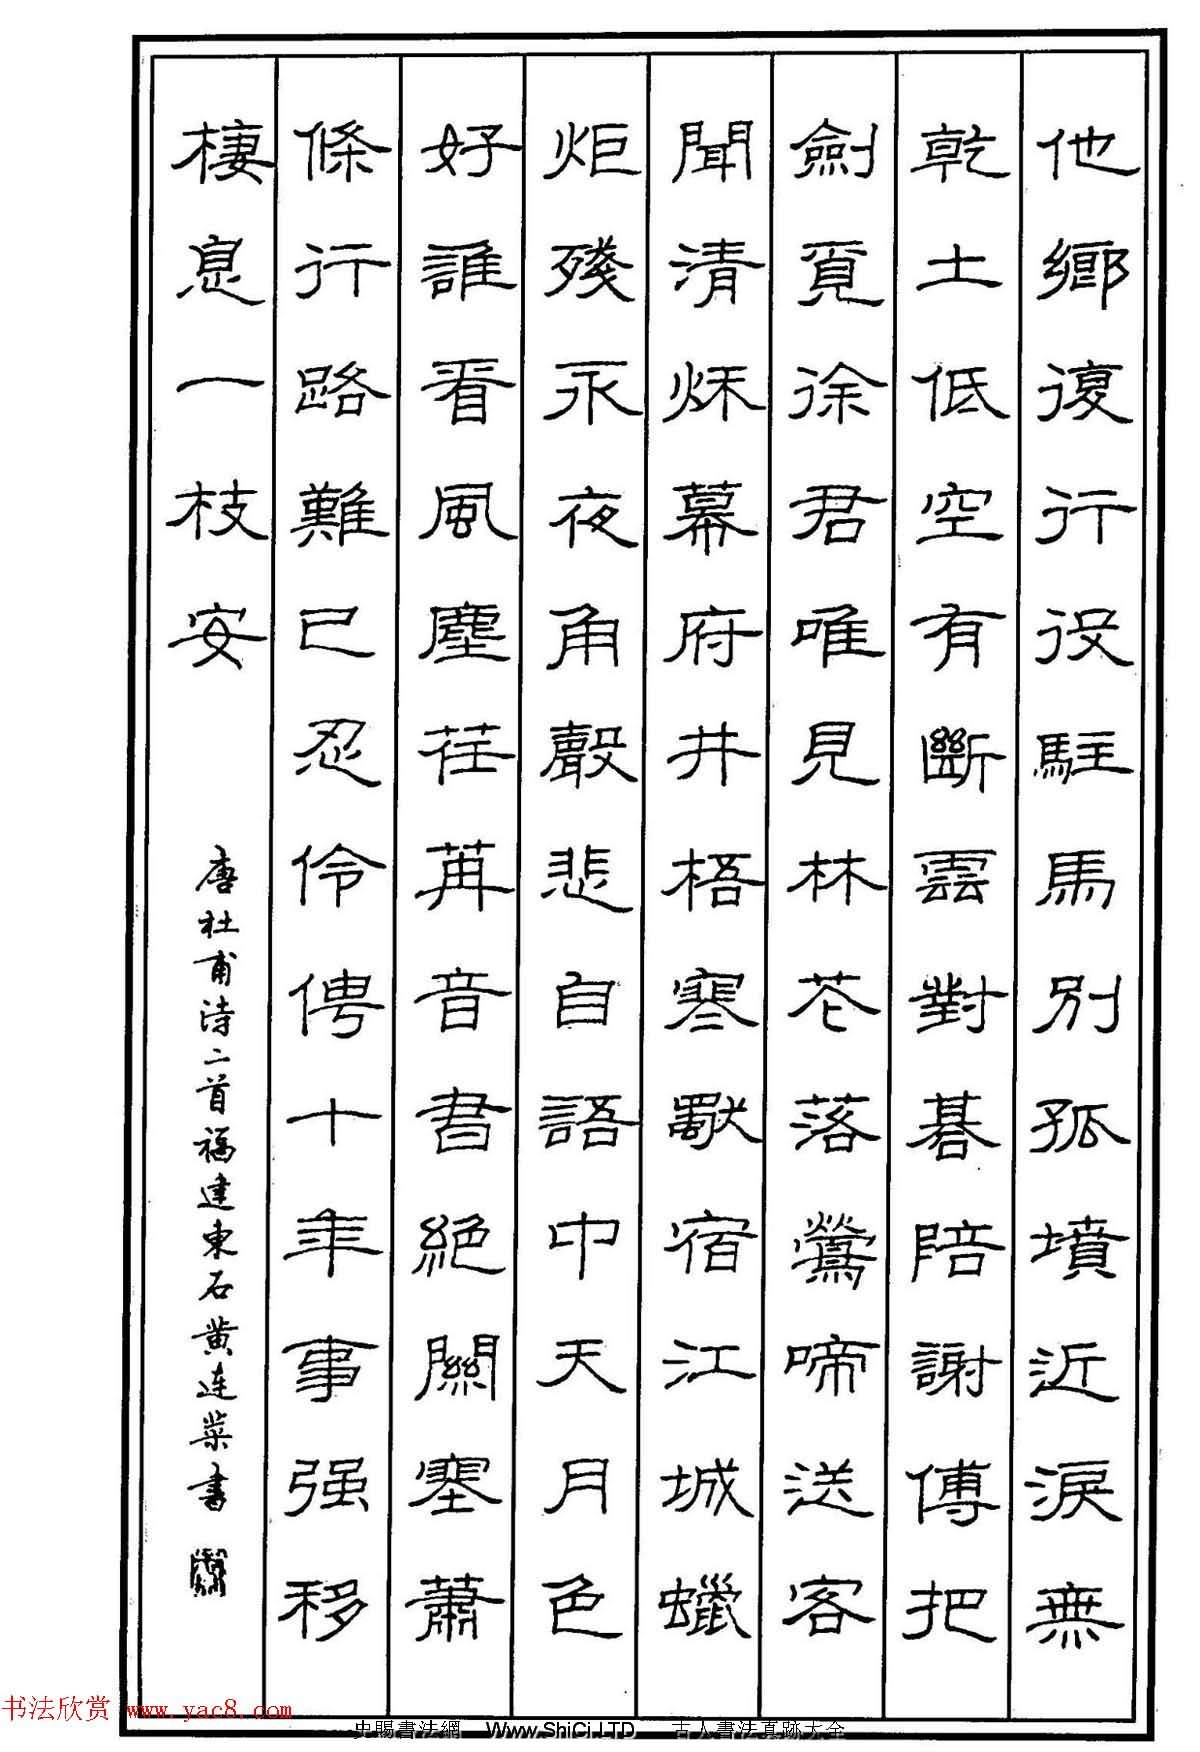 他鄉復行役駐馬別孤墳近淚無
乾土低空有斷雲對碁陪謝傅把
劍覓徐君唯見林花落鶯啼送客
聞清秌幕府井梧寒獸宿江城蠟
炬殘永夜角聲悲自語中天月色
好誰看風塵荏苒音書絕關塞蕭
條行路難已忍伶俜十年事强移
棲息一枝安
唐杜甫诗二首福建東石黄连菜書
书法欣赏 www.yac8.com
史賜書法網 Www.ShiCi.LTD 古人書法真跡大全